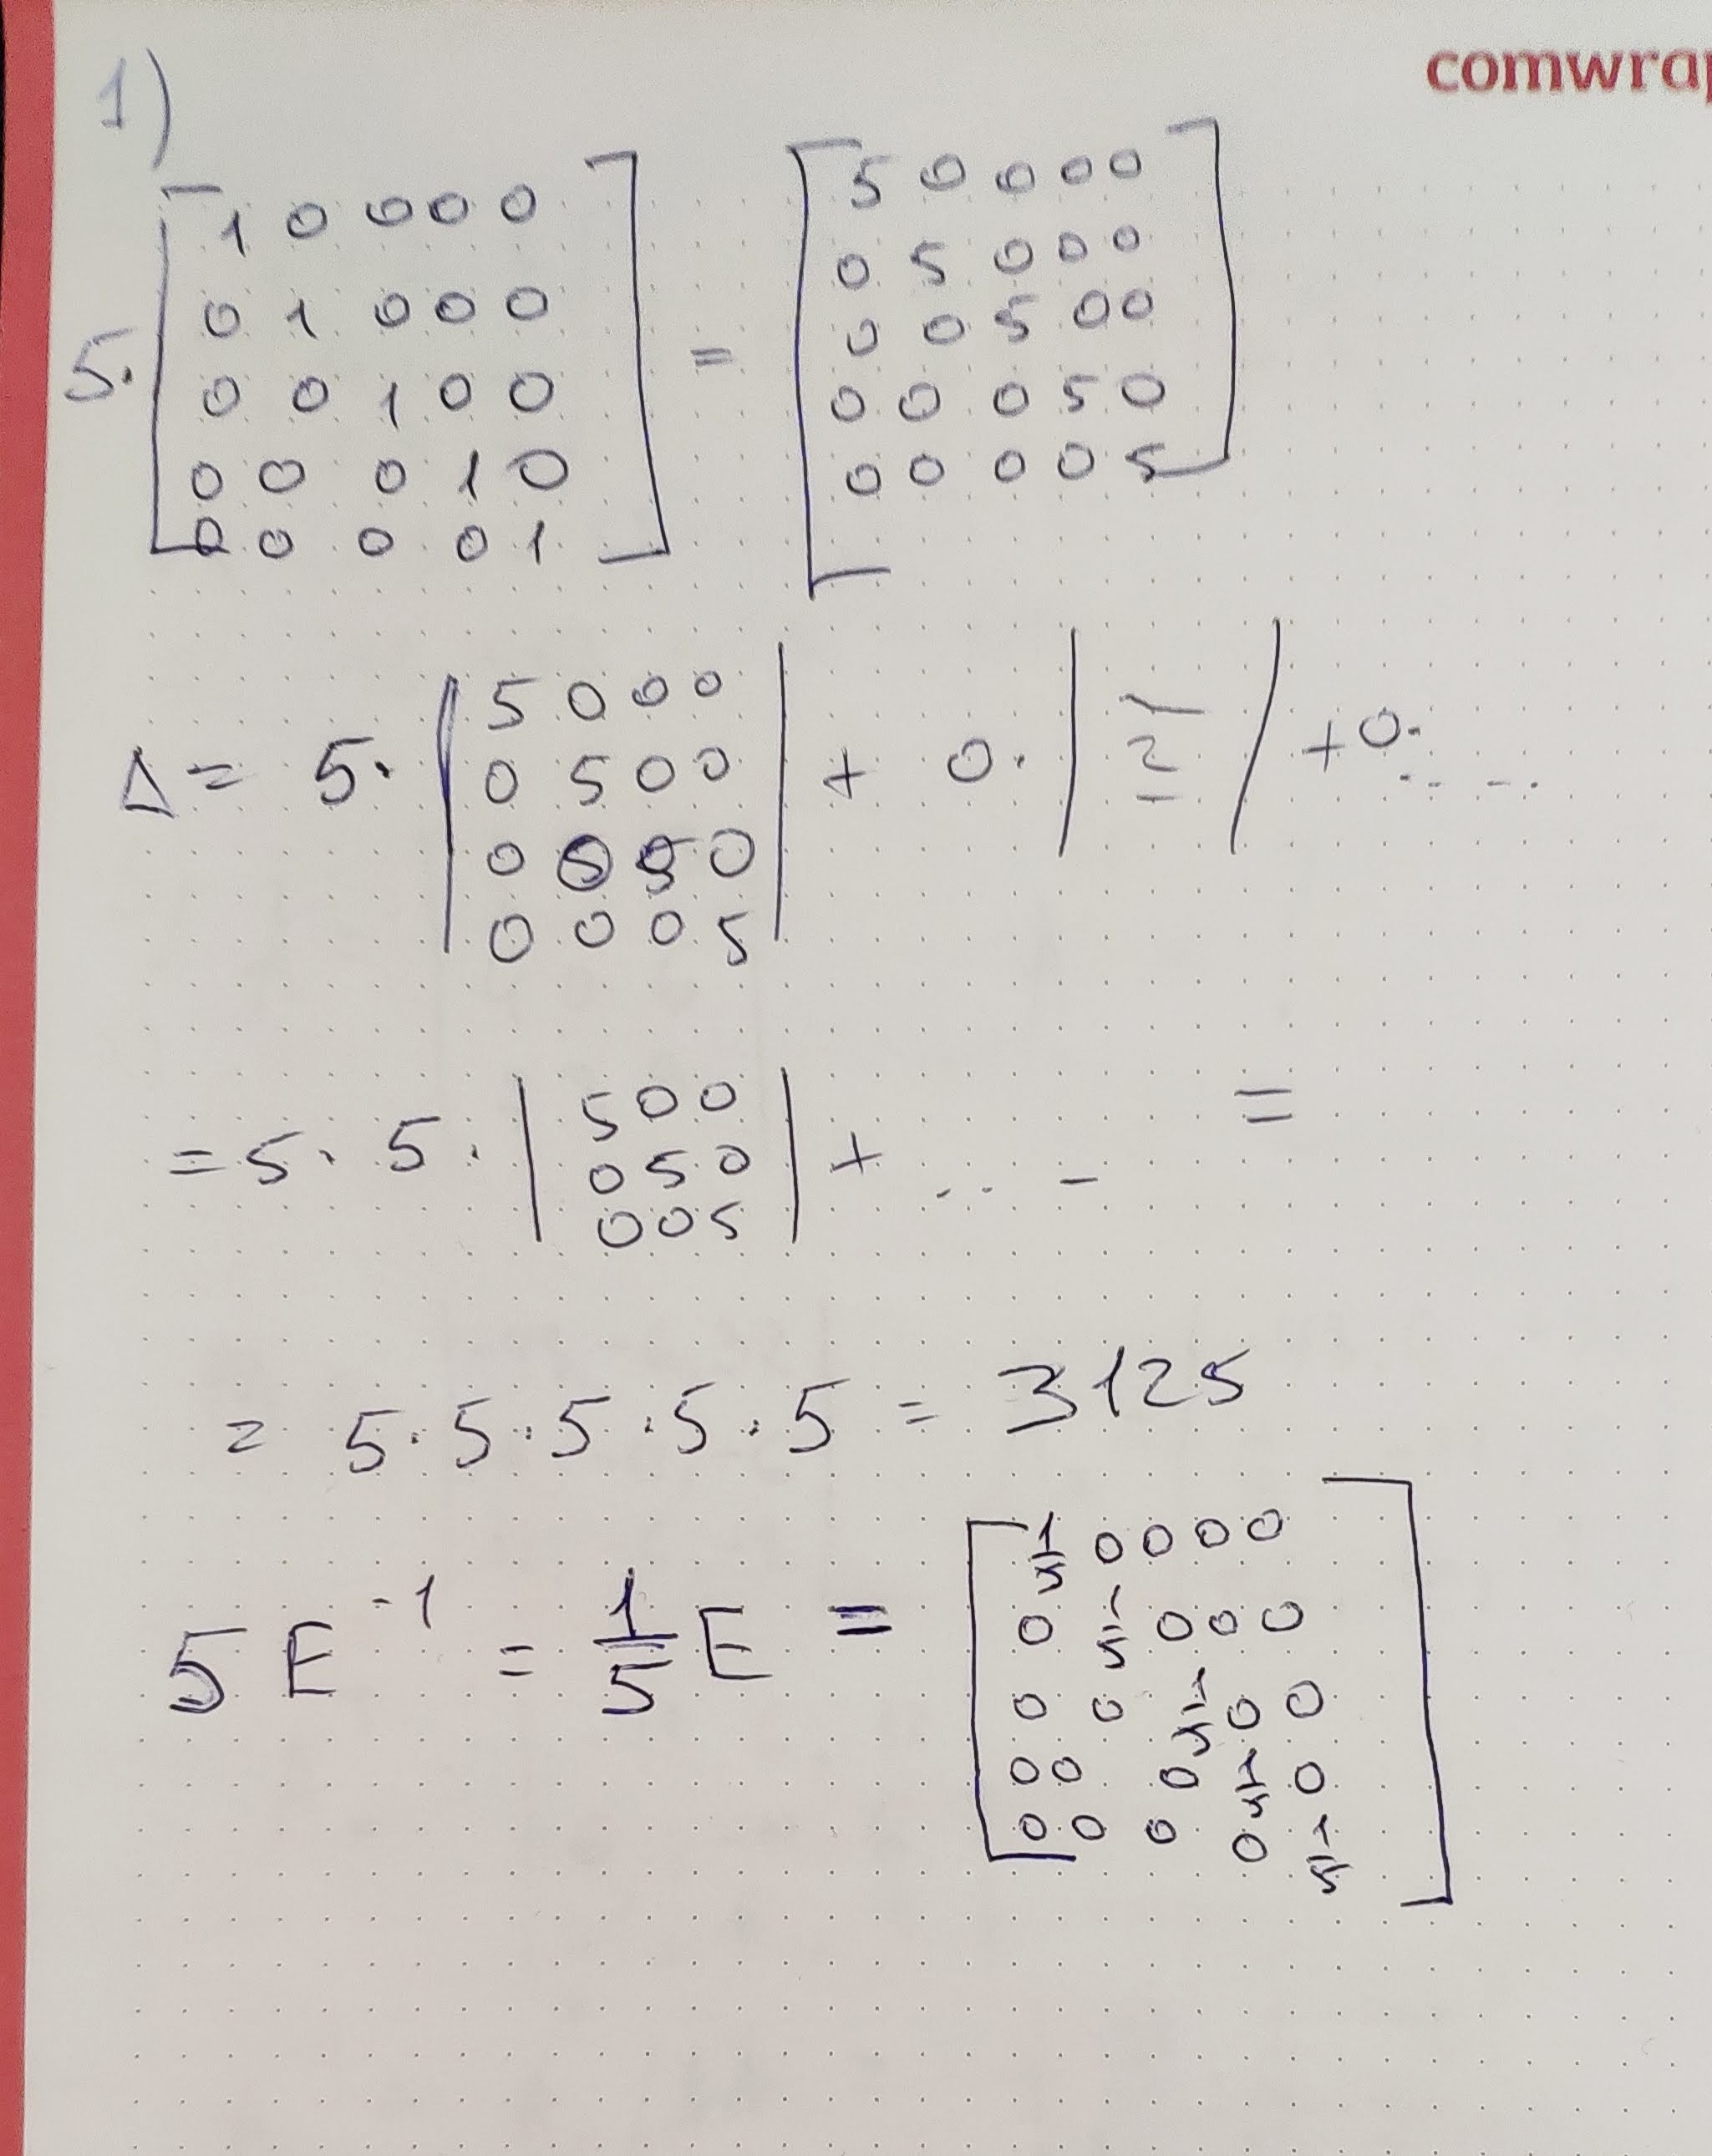 comwrap
1)
5· [1 0 0 0 0; 0 1 0 0 0; 0 0 1 0 0; 0 0 0 1 0; 0 0 0 0 1] = [5 0 0 0 0; 0 5 0 0 0; 0 0 5 0 0; 0 0 0 5 0; 0 0 0 0 5]
Δ = 5· |5 0 0 0; 0 5 0 0; 0 0 5 0; 0 0 0 5| + 0· | | + 0· ....
= 5 · 5 · |5 0 0; 0 5 0; 0 0 5| + ... - =
= 5 · 5 · 5 · 5 · 5 = 3125
5 E⁻¹ = 1/5 E = [1/5 0 0 0 0; 0 1/5 0 0 0; 0 0 1/5 0 0; 0 0 0 1/5 0; 0 0 0 0 1/5]